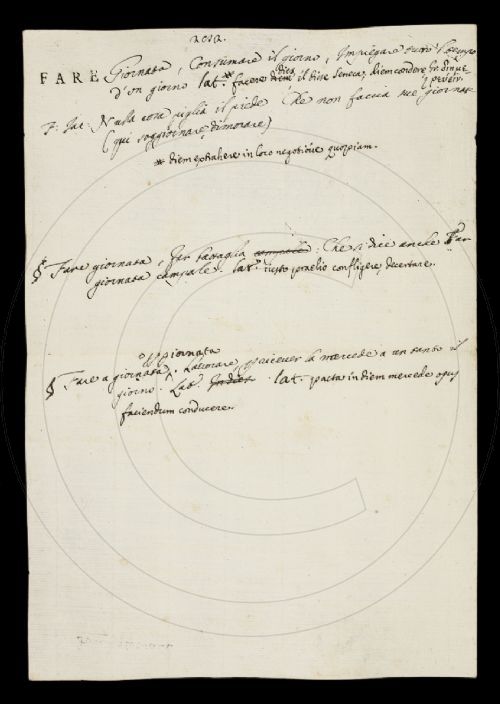 2012.
FARE Giornata, Consumare il giorno, Impiegar tutto 'l tempo
d'un giorno lat. facere diem il disse Seneca, diem condere
Fr. Iac. Nulla cosa piglia il piede Che non faccia sue giornate
(qui soggiornare, dimorare)
* diem extrahere in loco negotiove quopiam.
§ Fare giornata, Far battaglia campale: Che si dice anche Far
giornata campale. lat. iusto praelio confligere, decertare.
§ Fare a giornata, o pp giornata. Lavorare, e ricever la mercede a un tanto il
giorno. Lat. lat. pacta in diem mercede opus
faciendum conducere.